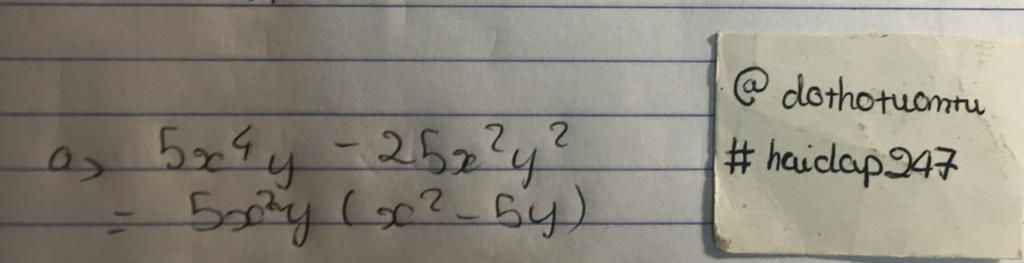 a, 5x⁴y - 25x²y²
= 5x²y (x² - 5y)
@ dothotuomtu
# hoidap247